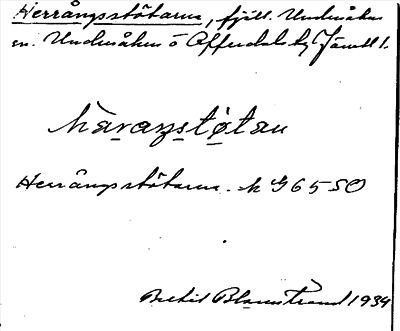 Herrångsstötarna, fjäll. Undersåkers
sn. Undersåkers o Offerdals tg Jämtl l.
hàraŋstòtan
Herrångstötarna. h G 65 SO
Bertil Blomstrand 1934